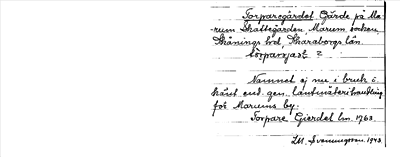 Torparegärdet Gärde på Ma-
rum Skattegården, Marum socken
Skånings hd, Skaraborgs län.
tòrparəjaʃt 2
Namnet ej nu i bruk o
känt enl. gen. lantmäterihandling
för Marums by.
Torpare Gierdet lm. 1763.
LM. Svenungsson 1943